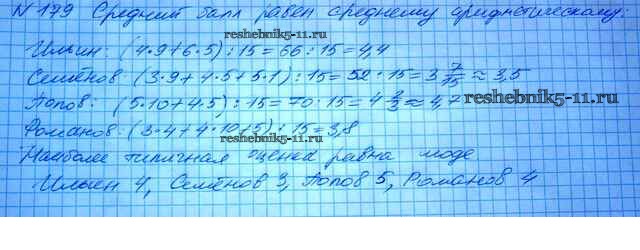 № 179 Средний балл равен среднему арифметическому:
reshebnik5-11.ru
Ильин: (4·9+6·5):15=66:15=4,4
Семёнов: (3·9+4·5+5·1):15=52:15=3 7/15≈3,5
Попов: (5·10+4·5):15=70:15=4 2/3≈4,7
reshebnik5-11.ru
Романов: (3·4+4·10+5):15=3,8
reshebnik5-11.ru
Наиболее типичная оценка равна моде
Ильин 4, Семёнов 3, Попов 5, Романов 4